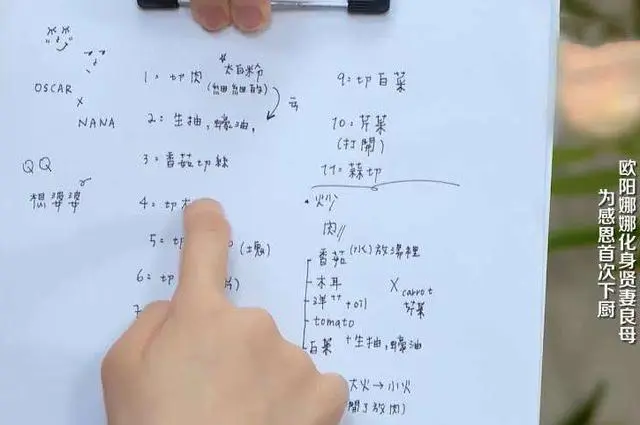 OSCAR
X
NANA
QQ
想婆婆
1：切肉 *太白粉
(細細的)
2：生抽，蠔油，
3：香菇切絲
4：切
5：切 (塊)
6：切 片)
9：切白菜
10：芹菜
(打開)
11：蒜切
·炒
肉
香菇(水)放湯裡
木耳
洋 +oil
tomato
白菜 +生抽，蠔油
X carrot
芹菜
大火→小火
開了放肉)
欧阳娜娜化身贤妻良母
为感恩首次下厨